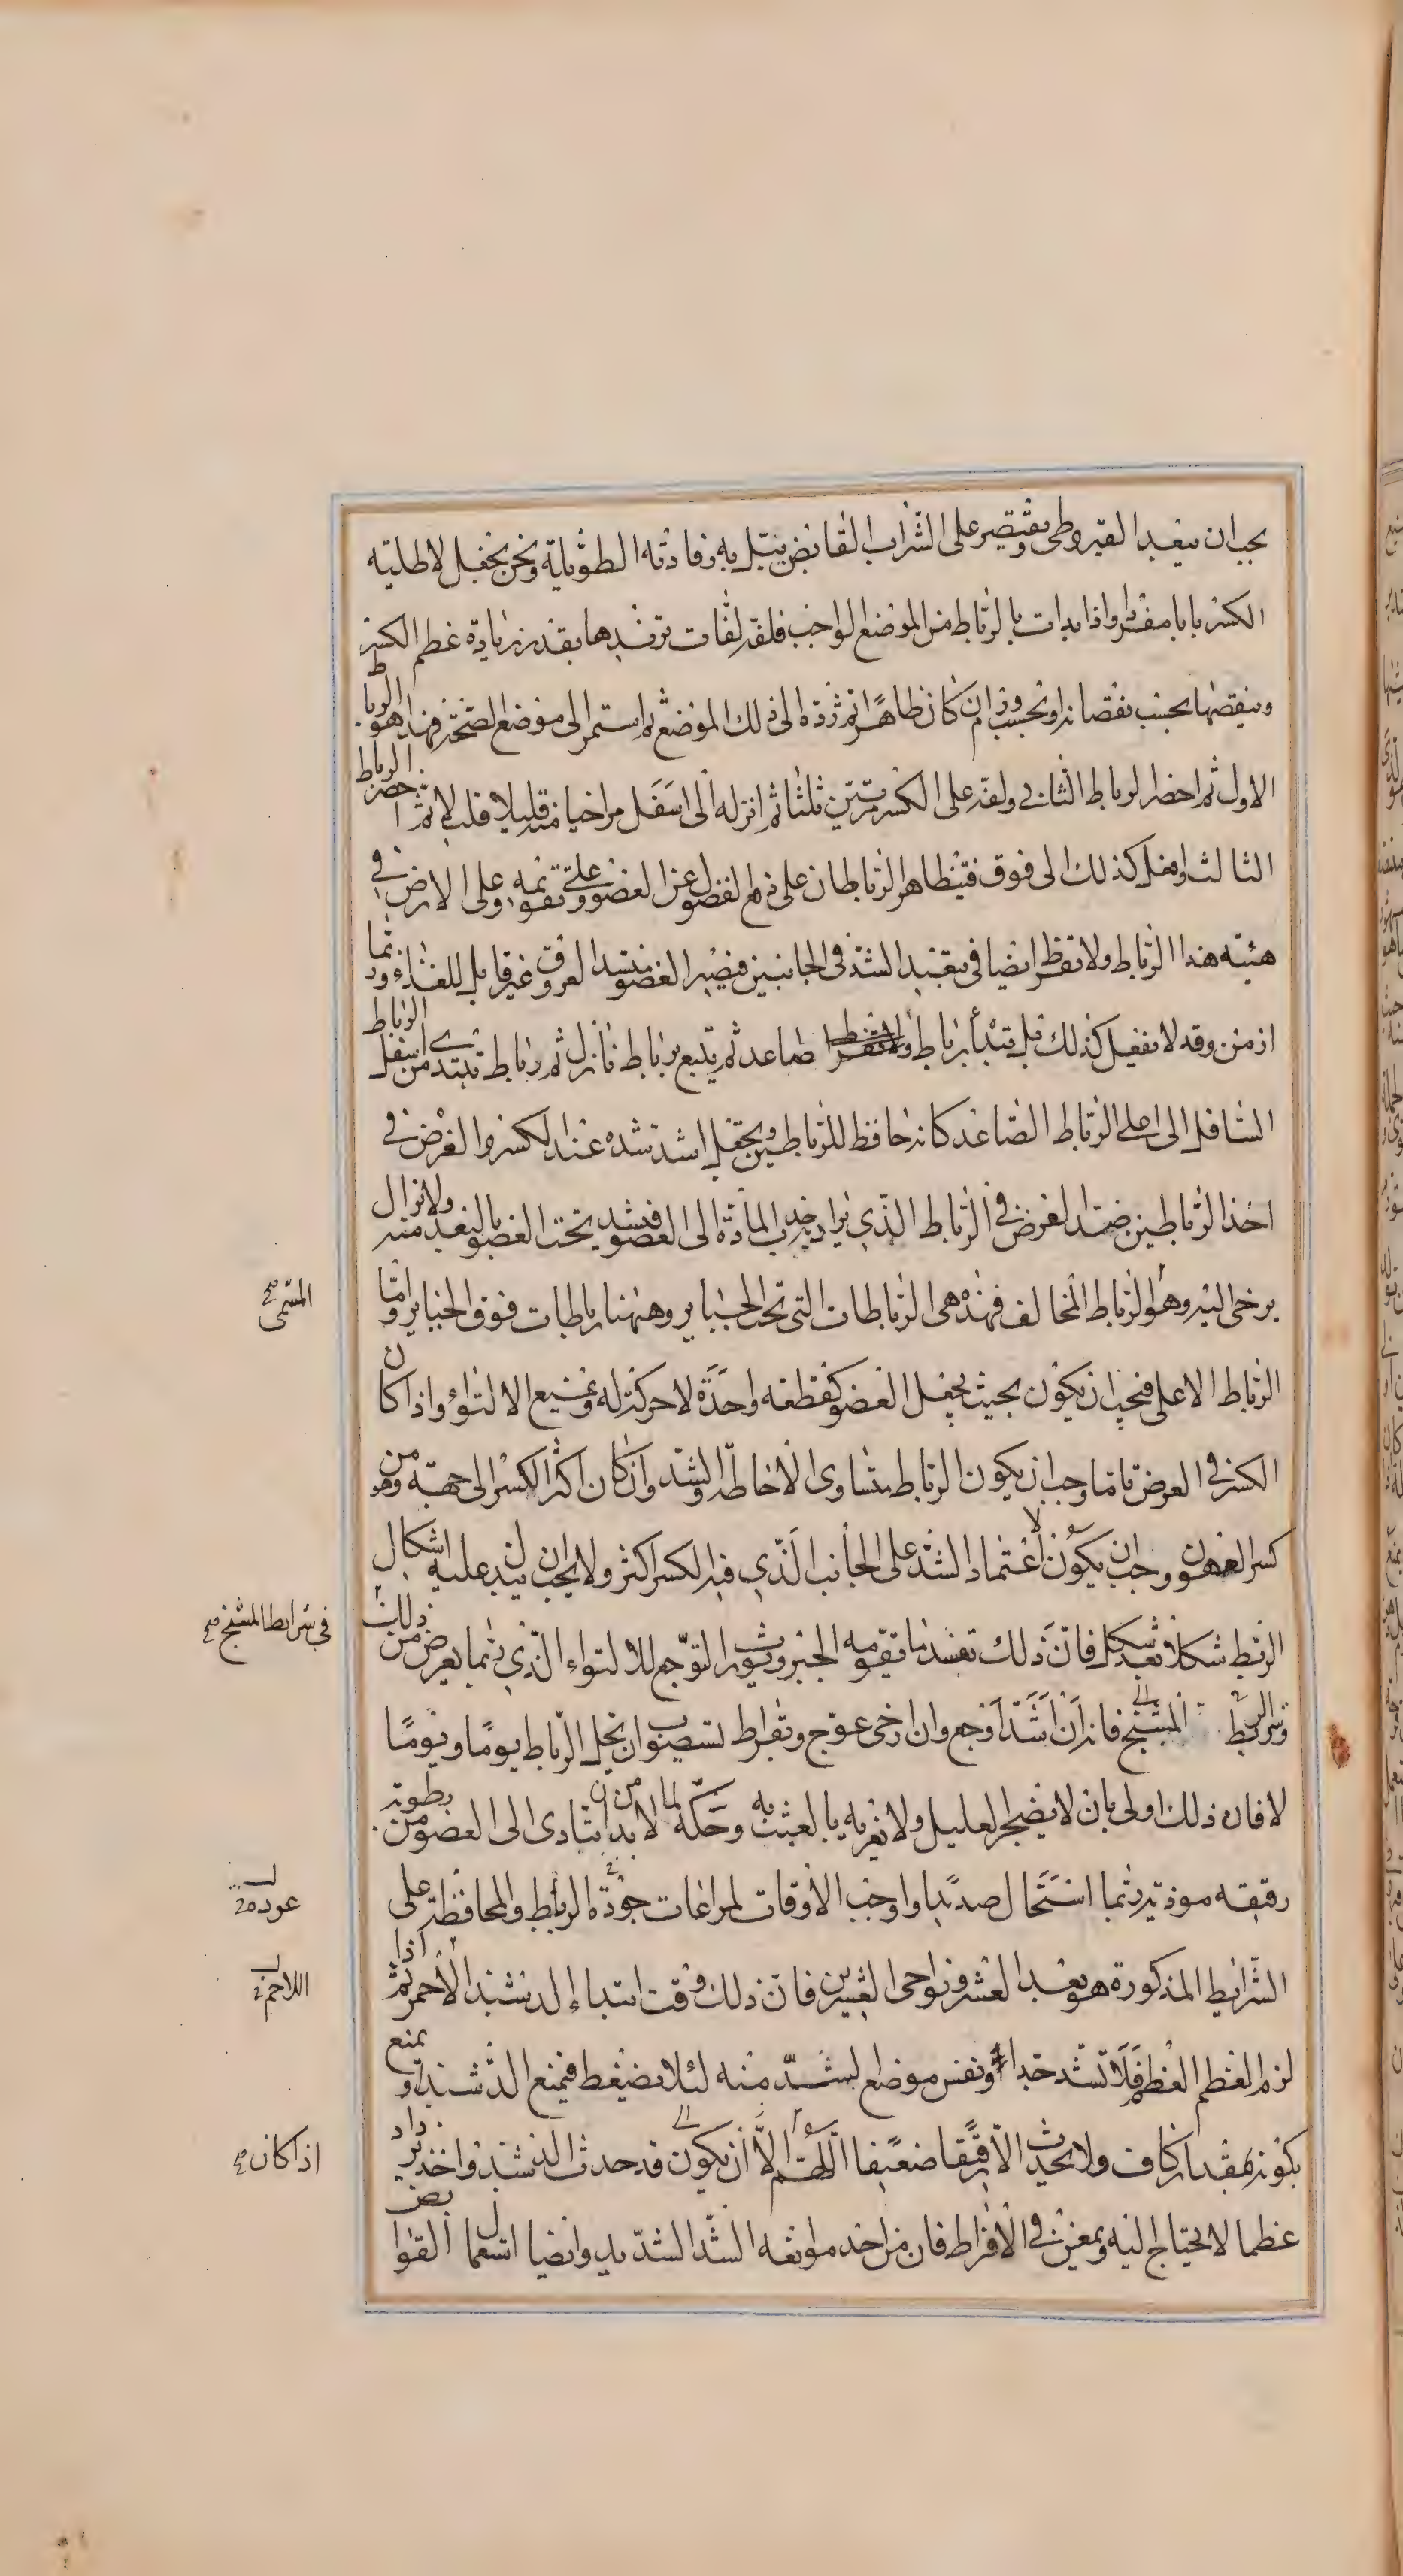 يجب ان يبعد القيروطى ويقتصر على الشراب القابض يبتل به رفادته الطويلة ونحن نجعل لاطلية
الكسر بابا مفردا واذا بدات بالرباط من الموضع الواجب فلفه لفات تزيدها بقدر زيادة عظم الكسر
وينقصها بحسب نقصانه او بحسب ورم ان كان ظاهرا ثم رده الى ذلك الموضع ثم استمر الى موضع الصحة فهذا هو الرباط
الاول ثم احضر الرباط الثانى ولفه على الكسر مرتين ثلثا ثم انزله الى اسفل مراخيا منه قليلا قليلا ثم احضر الرباط
الثالث وافعل كذلك الى فوق فيتظاهر الرباطان على دفع الفضول عن العضو وعلى تقويمه وعلى الارض فى
هيئته هذا الرباط ولا تفرط ايضا فى تبعيد الشد فى الجانبين فيصير العضو منسد العروق غير قابل للغذاء وربما
ازمن وقد لا تفعل كذلك بل تبدأ برباط صاعد ثم يتبع برباط نازل ثم رباط يبتدى من اسفل الرباط
السافل الى اعلى الرباط الصاعد كانه حافظ للرباطين ويجعل اشد شده عند الكسر والغرض فى
احد الرباطين ضد الغرض فى الرباط الذى يراد جذب المادة الى العضو فيشد تحت العضو بالبعد منه ولا تزال
يرخى اليه وهو الرباط المخالف فهذه هى الرباطات التى تحت الجباير وههنا رباطات فوق الجباير واما
المسمى صح
الرباط الاعلى فيجب ان يكون بحيث يجعل العضو كقطعة واحدة لا حركة له ويمنع الالتواء واذا كان
الكسر فى العرض تاما وجب ان يكون الرباط متساوى الاحاطة والشد وان كان اكثر الكسر الى جهة وهو من
كسر العضو وجب ان يكون اعتماد الشد على الجانب الذى فيه الكسر اكثر ولا يجب ان يبدل عليه اشكال
الربط شكلا بعد شكل فان ذلك تفسد ما تقومه الجبر ويورث التوجع للالتواء الذى ربما يعرض من ذلك
فى شرايط المشنج صح
وشر الربط المشنج فانه ان اشتد اوجع وان ارخى عوج وبقراط يستصوب ان يحل الرباط يوما ويوما
لا فان ذلك اولى بان لا يضجر العليل ولا يغريه بالعبث به وحكه لما لا بد من ان يتادى الى العضو من رطوبة
رقيقة موذية ربما استحال صديدا واوجب الاوقات لمراعات جودة الرباط والمحافظة على
عوده
الشرايط المذكورة هو بعد العشر ونواحى العشرين فان ذلك وقت ابتداء الدشبذ الاحمر ثم اذا
اللاحم
لزم العظم العظم فلا تشد جدا ونفس موضع الشد منه لئلا يضغط فيمنع الدشبذ او يمنع
كونه بمقدار كاف ولا يحدث الا رقيقا ضعيفا اللهم الا ان يكون قد حدث الدشبذ واخذ يزداد
اذا كان صح
عظما لا يحتاج اليه ويمعن فى الافراط فان من احد موانعه الشد الشديد وايضا استعمال القوا بض